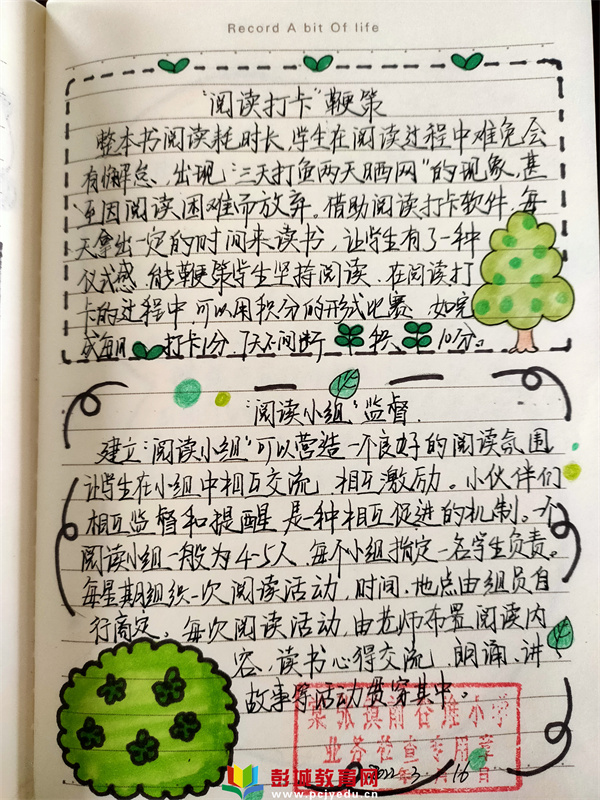 Record A bit Of life
"阅读打卡"鞭策
整本书阅读耗时长,学生在阅读过程中难免会
有懈怠、出现"三天打鱼两天晒网"的现象,甚
至因阅读困难而放弃。借助阅读打卡软件,每
天拿出一定的时间来读书,让学生有了一种
仪式感,能鞭策学生坚持阅读、在阅读打
卡的过程中,可以用积分的形式比赛,如完
成每日打卡1分,7天不间断积10分。
"阅读小组"监督
建立"阅读小组"可以营造一个良好的阅读氛围
让学生在小组中相互交流,相互激励。小伙伴们
相互监督和提醒是种相互促进的机制。一个
阅读小组一般为4-5人,每个小组指定一名学生负责。
每星期组织一次阅读活动,时间、地点由组员自
行商定。每次阅读活动,由老师布置阅读内
容、读书心得交流、朗诵、讲
故事等活动贯穿其中。
张旗前谷堆小学
业务检查专用章
2022年3月16日
彭城教育网
www.pcjyedu.cn